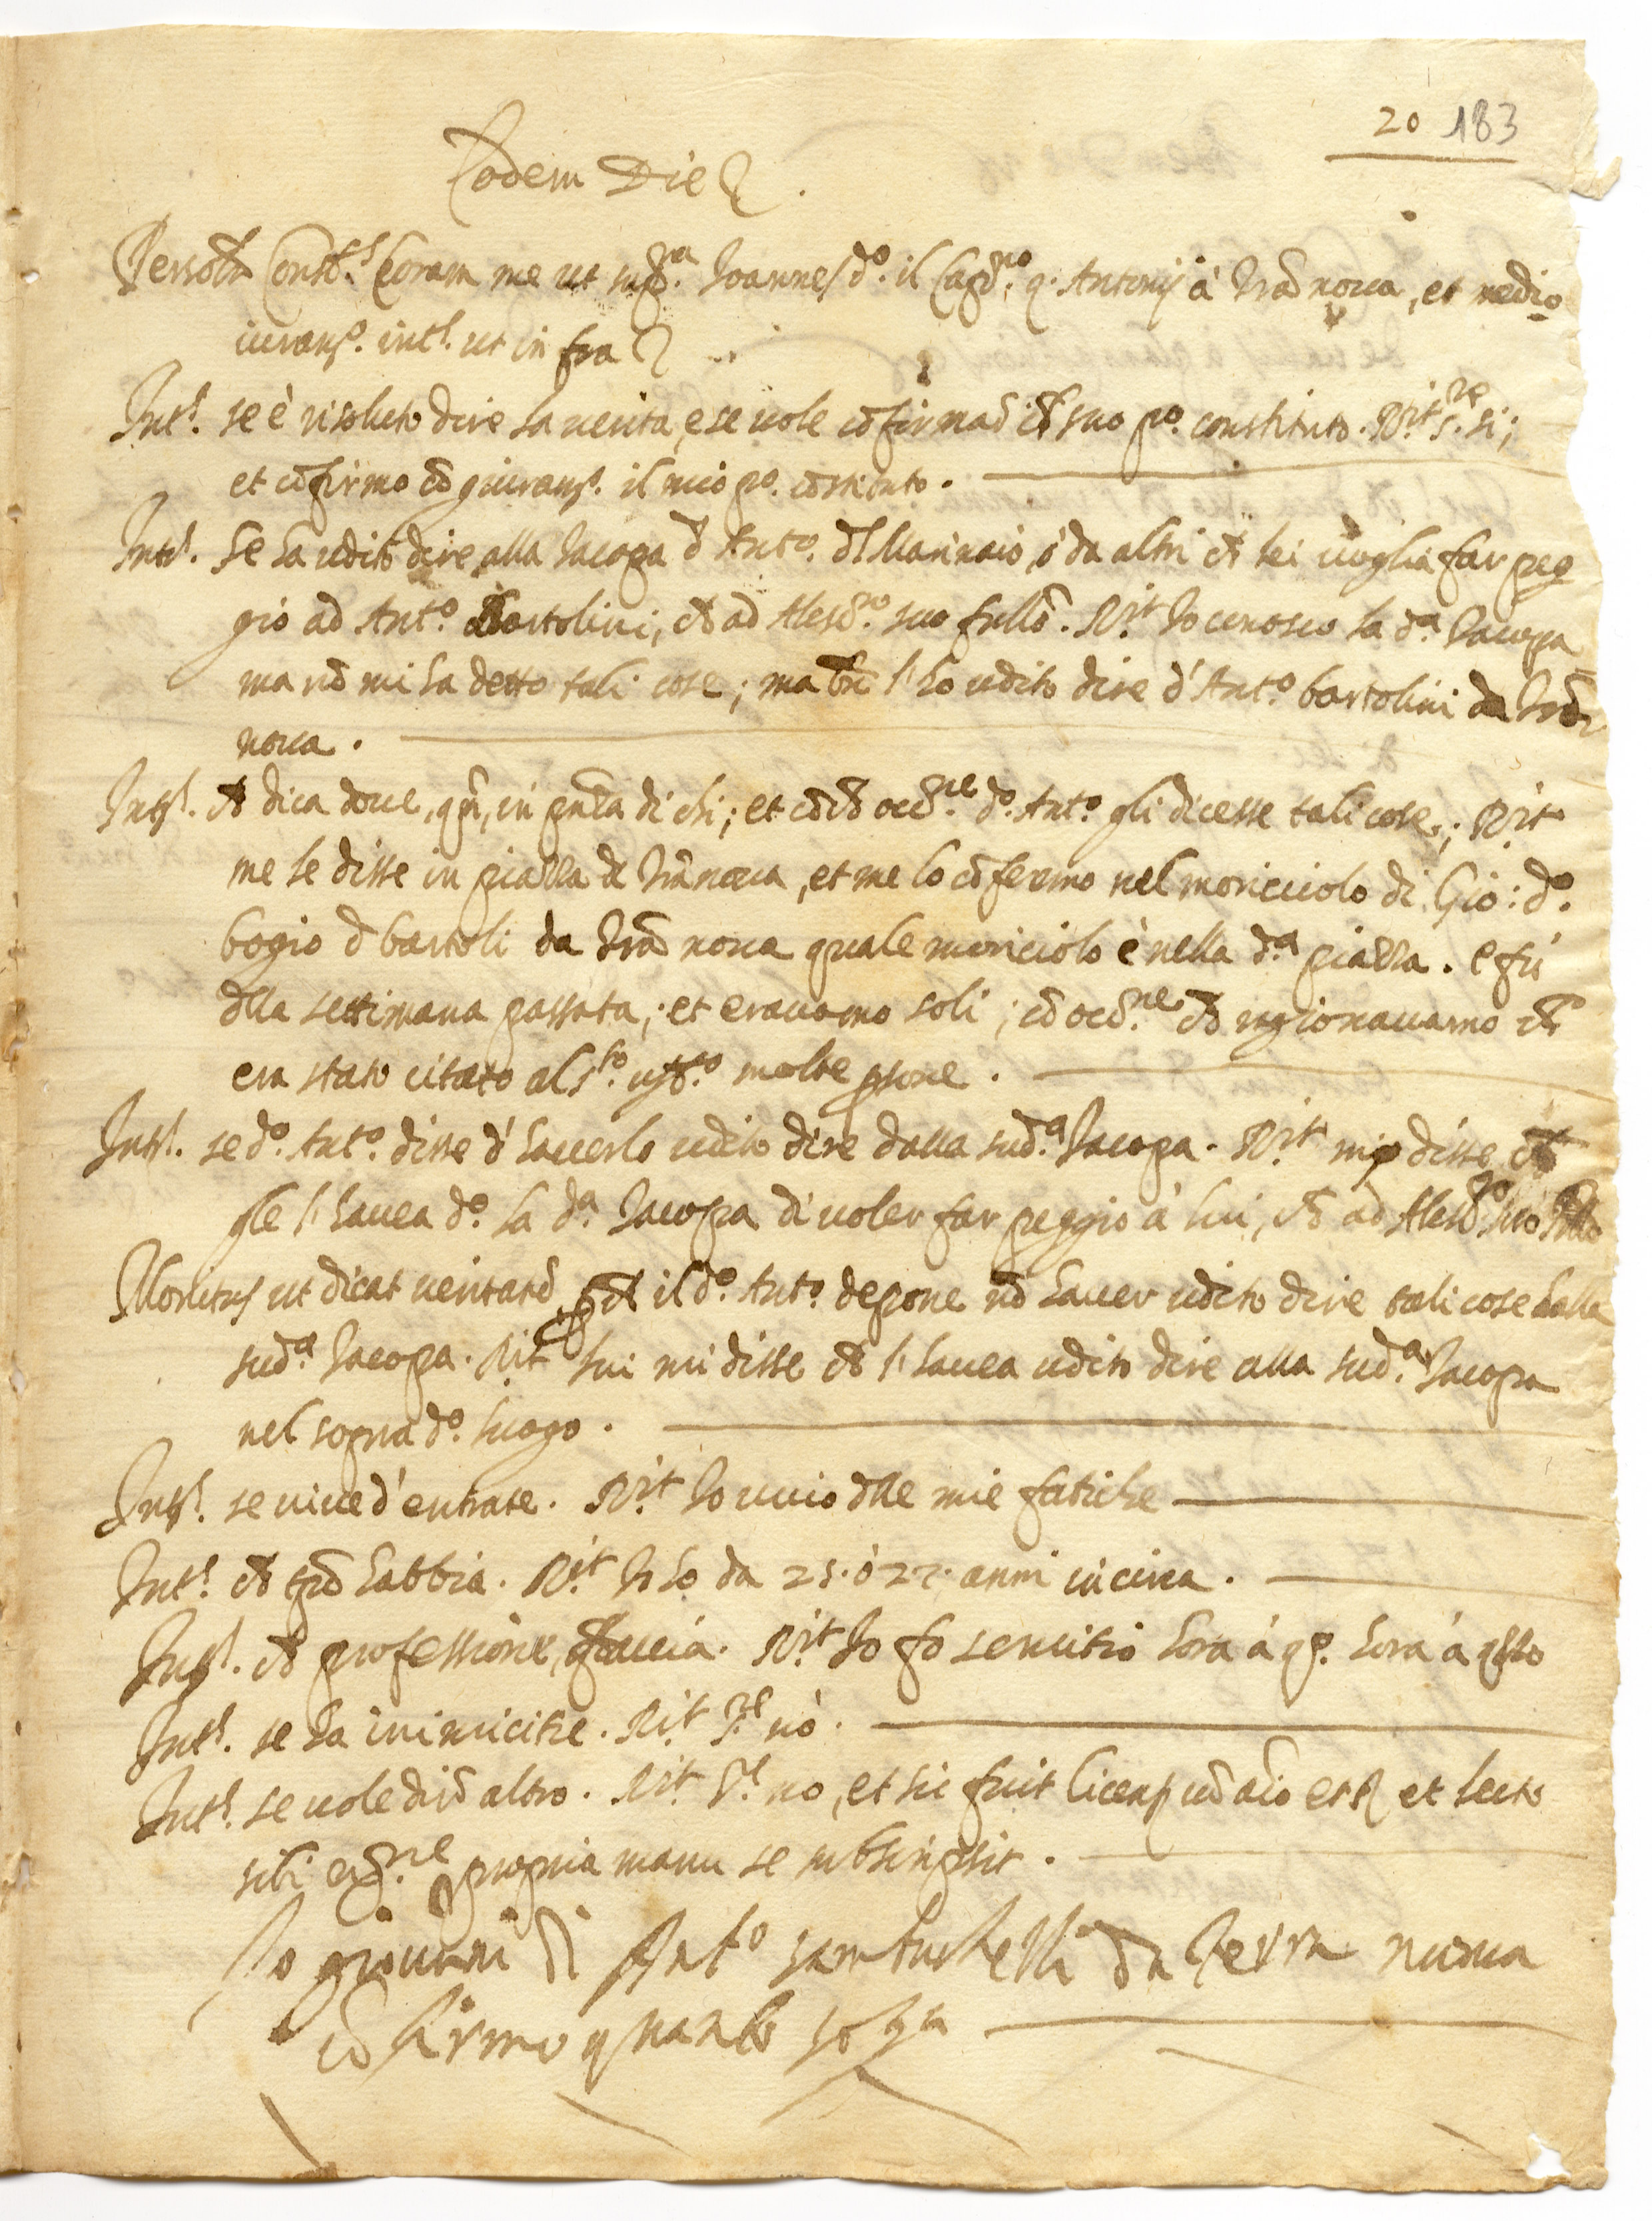 20 183
Eodem Die
Persolr Consts. Coram me ut supra. Joannes do. il q. Antonij à Tra noua, et medio
iurans. ints. ut in fra
Ints. se è risoluto dire la uerita, e se uole cõfirmar il suo po. constituto. Rit. sre. si;
et cõfirmo cõ giurans. il mio po. cõstituto.
Ints. Se ha udito dire alla Jacopa d Anto. dl Marinaio, ò da altri ch lei uoglia far peg
gio ad Anto. Bartolini, ch ad Alesro. suo frllo. Rit. Io conosco la da. Jacopa
ma nõ mi ha detto tali cose; ma l'ho udito dire d' Anto. bartolini da Tra
noua.
Ints. ch dica doue, qn, in pnza di chi; et cõ ch occne. do. Anto. gli dicesse tali cose; Rit.
me le disse in piazza d Tranoua, et me lo cõfermo nel moricciolo di Gio: do.
bogio d bartoli da Tra noua quale moriciolo è nella da. piazza. e fu
dlla settimana passata; et erauamo soli; cõ occne. ch ragionauamo ch
era stato citato al sto. uffo. molte psone.
Ints. se do. Anto. disse d' hauerlo udito dire dalla suda. Jacopa. Rit. mi disse ch
gle l'hauea do. la da. Jacopa di uoler far peggio à lui, ch ad Alesro. suo frllo
Monitus ut dicat ueritatẽ, pch il do. Anto. depone nõ hauer udito dire tali cose dalla
suda. Jacopa. Rit. lui mi disse ch l'hauea udito dire alla suda. Jacopa
nel sopra do. luogo.
Ints. se uiue d' entrate. Rit. Io uiuo dlle mie fatiche
Ints. ch tpõ habbia. Rit. Io ho da 25. ò 27. anni in circa.
Ints. ch professione faccia. Rit. Io fo seruitio hora à qo. hora à qllo
Ints. se ha inimicitie. Rit. Sre. nò.
Ints. se uole dir altro. Rit. Sre. no, et sic fuit licens. cũ aio etc et lecto
sibi exne. propria manu se subscripsit.
Io giouani di Anto da Terra nuoua
cõfirmo quanto sopa